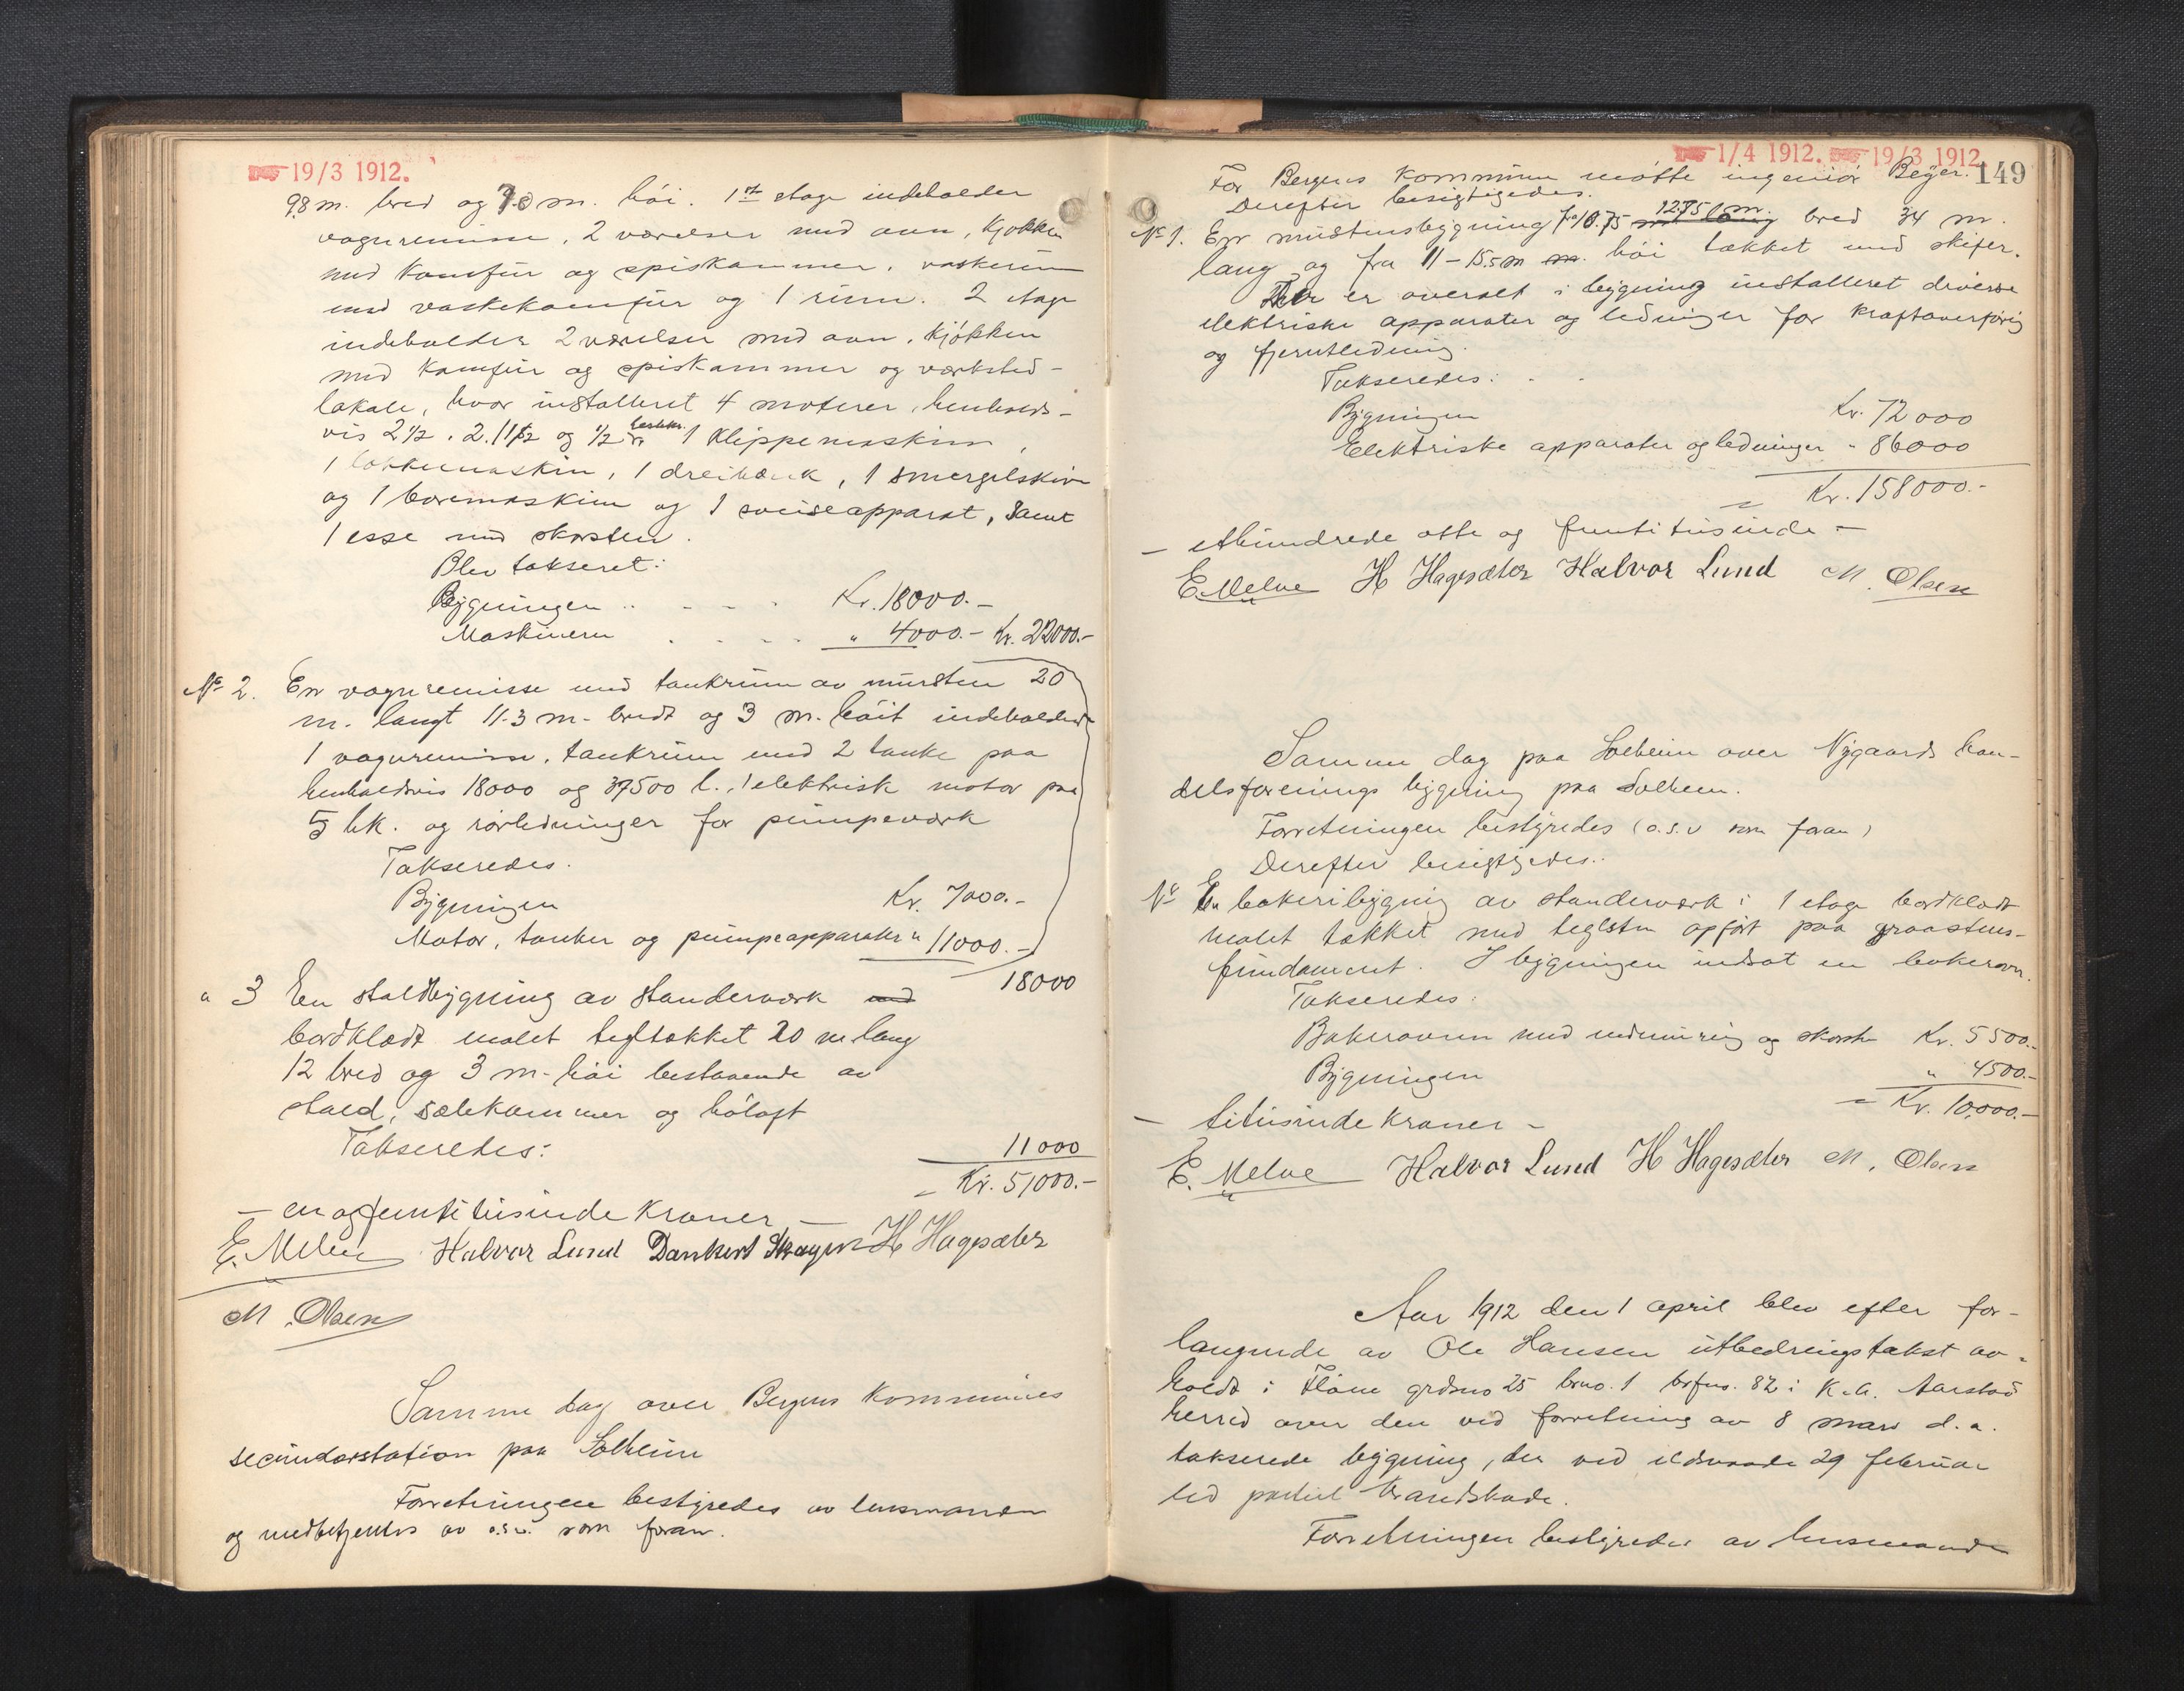 19/3 1912.
9.8 m. bred og 7.0 m. høi. 1ste etage indeholder
vognremisse, 2 værelser med ovn, kjøkken
med komfur og spiskammer, vaskerum
med vaskekomfur og 1 rum. 2 etage
indeholder 2 værelser med ovn, kjøkken
med komfur og spiskammer og værksted-
lokale, hvor installeret 4 motorer, henholds-
vis 2 1/2, 2. 1 1/2 og 1/2 hestekr. 1 klippemaskin,
1 lokkemaskin, 1 dreibænk, 1 smergelskive
og 1 boremaskin og 1 sveiseapparat, samt
1 esse med skorsten.
Blev takseret:
Bygningen .. - - - Kr. 18000.-
Maskineri . . - - . " 4000.- Kr. 22000.-
No 2. En vognremisse med tankrum av mursten 20
m. langt 11.3 m. bredt og 3 m. høit indeholdende
1 vognremisse, tankrum med 2 tanke paa
henholdsvis 18000 og 37500 l., 1 elektrisk motor paa
5 hk. og rørledninger for pumpeværk
Takseredes.
Bygningen Kr. 7000.-
Motor, tanker og pumpeapparater " 11000.-
18000
" 3 En staldbygning av standerværk med
bordklædt malet tegltækket 20 m lang
12 bred og 3 m. høi bestaaende av
stald, sælekammer og høloft
Takseredes: 11000
= Kr. 51000.-
- en og femti tusinde kroner -
E. Melve Halvor Lund Dankert Skagen H Hagesæter
M. Olsen
Samme dag over Bergens kommunes
secundærstation paa Solheim
Forretningen bestyredes av lensmanden
og medbetjentes av o.s.v. som foran.
1/4 1912. 19/3 1912.
149
For Bergens kommune møtte ingeniør Beyer.
Derefter besigtigedes.
No 1. En murstensbygning fra 10.75 m 12.75 m. lang bred 34 m.
lang og fra 11 - 15.5 m m. høi tækket med skifer.
Der er overalt i bygning installeret diverse
elektriske apparater og ledninger for kraftoverføring
og fjernledning.
Takseredes: . .
Bygningen Kr. 72000
Elektriske apparater og ledninger " 86000
= Kr. 158000.-
- ethundrede otte og femti tusinde -
E. Melve H Hagesæter Halvor Lund M. Olsen
Samme dag paa Solheim over Nygaards han-
delsforenings bygning paa Solheim.
Forretningen bestyredes (o.s.v som foran)
Derefter besigtigedes..
No En bakeribygning av standerværk i 1 etage bordklædt
malet tækket med teglsten opført paa graastens-
fundament. I bygningen indsat en bakerovn.
Takseredes:
Bakerovnen med indmuring og skorsten Kr. 5500.-
Bygningen " 4500.-
= Kr. 10.000.-
- titusinde kroner -
E. Melve Halvor Lund H Hagesæter M. Olsen
Aar 1912 den 1 april blev efter for-
langende av Ole Hansen utbedringstakst av-
holdt i Fløen grdsno 25 brno. 1 brfno. 82 i K. a. Aarstad
herred over den ved forretning av 8 mars d.a.
takserede bygning, der ved ildsvaade 29 februar
led partiel brandskade.
Forretningen bestyredes av lensmanden